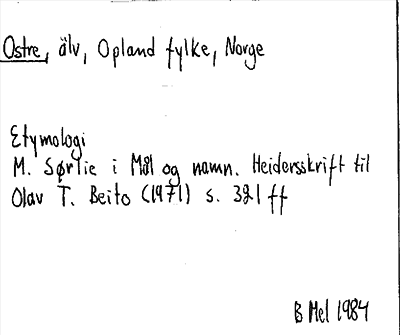 Ostre, älv, Opland fylke, Norge
Etymologi
M. Sørlie i Mål og namn. Heidersskrift til
Olav T. Beito (1971) s. 321 ff
B Mel 1984